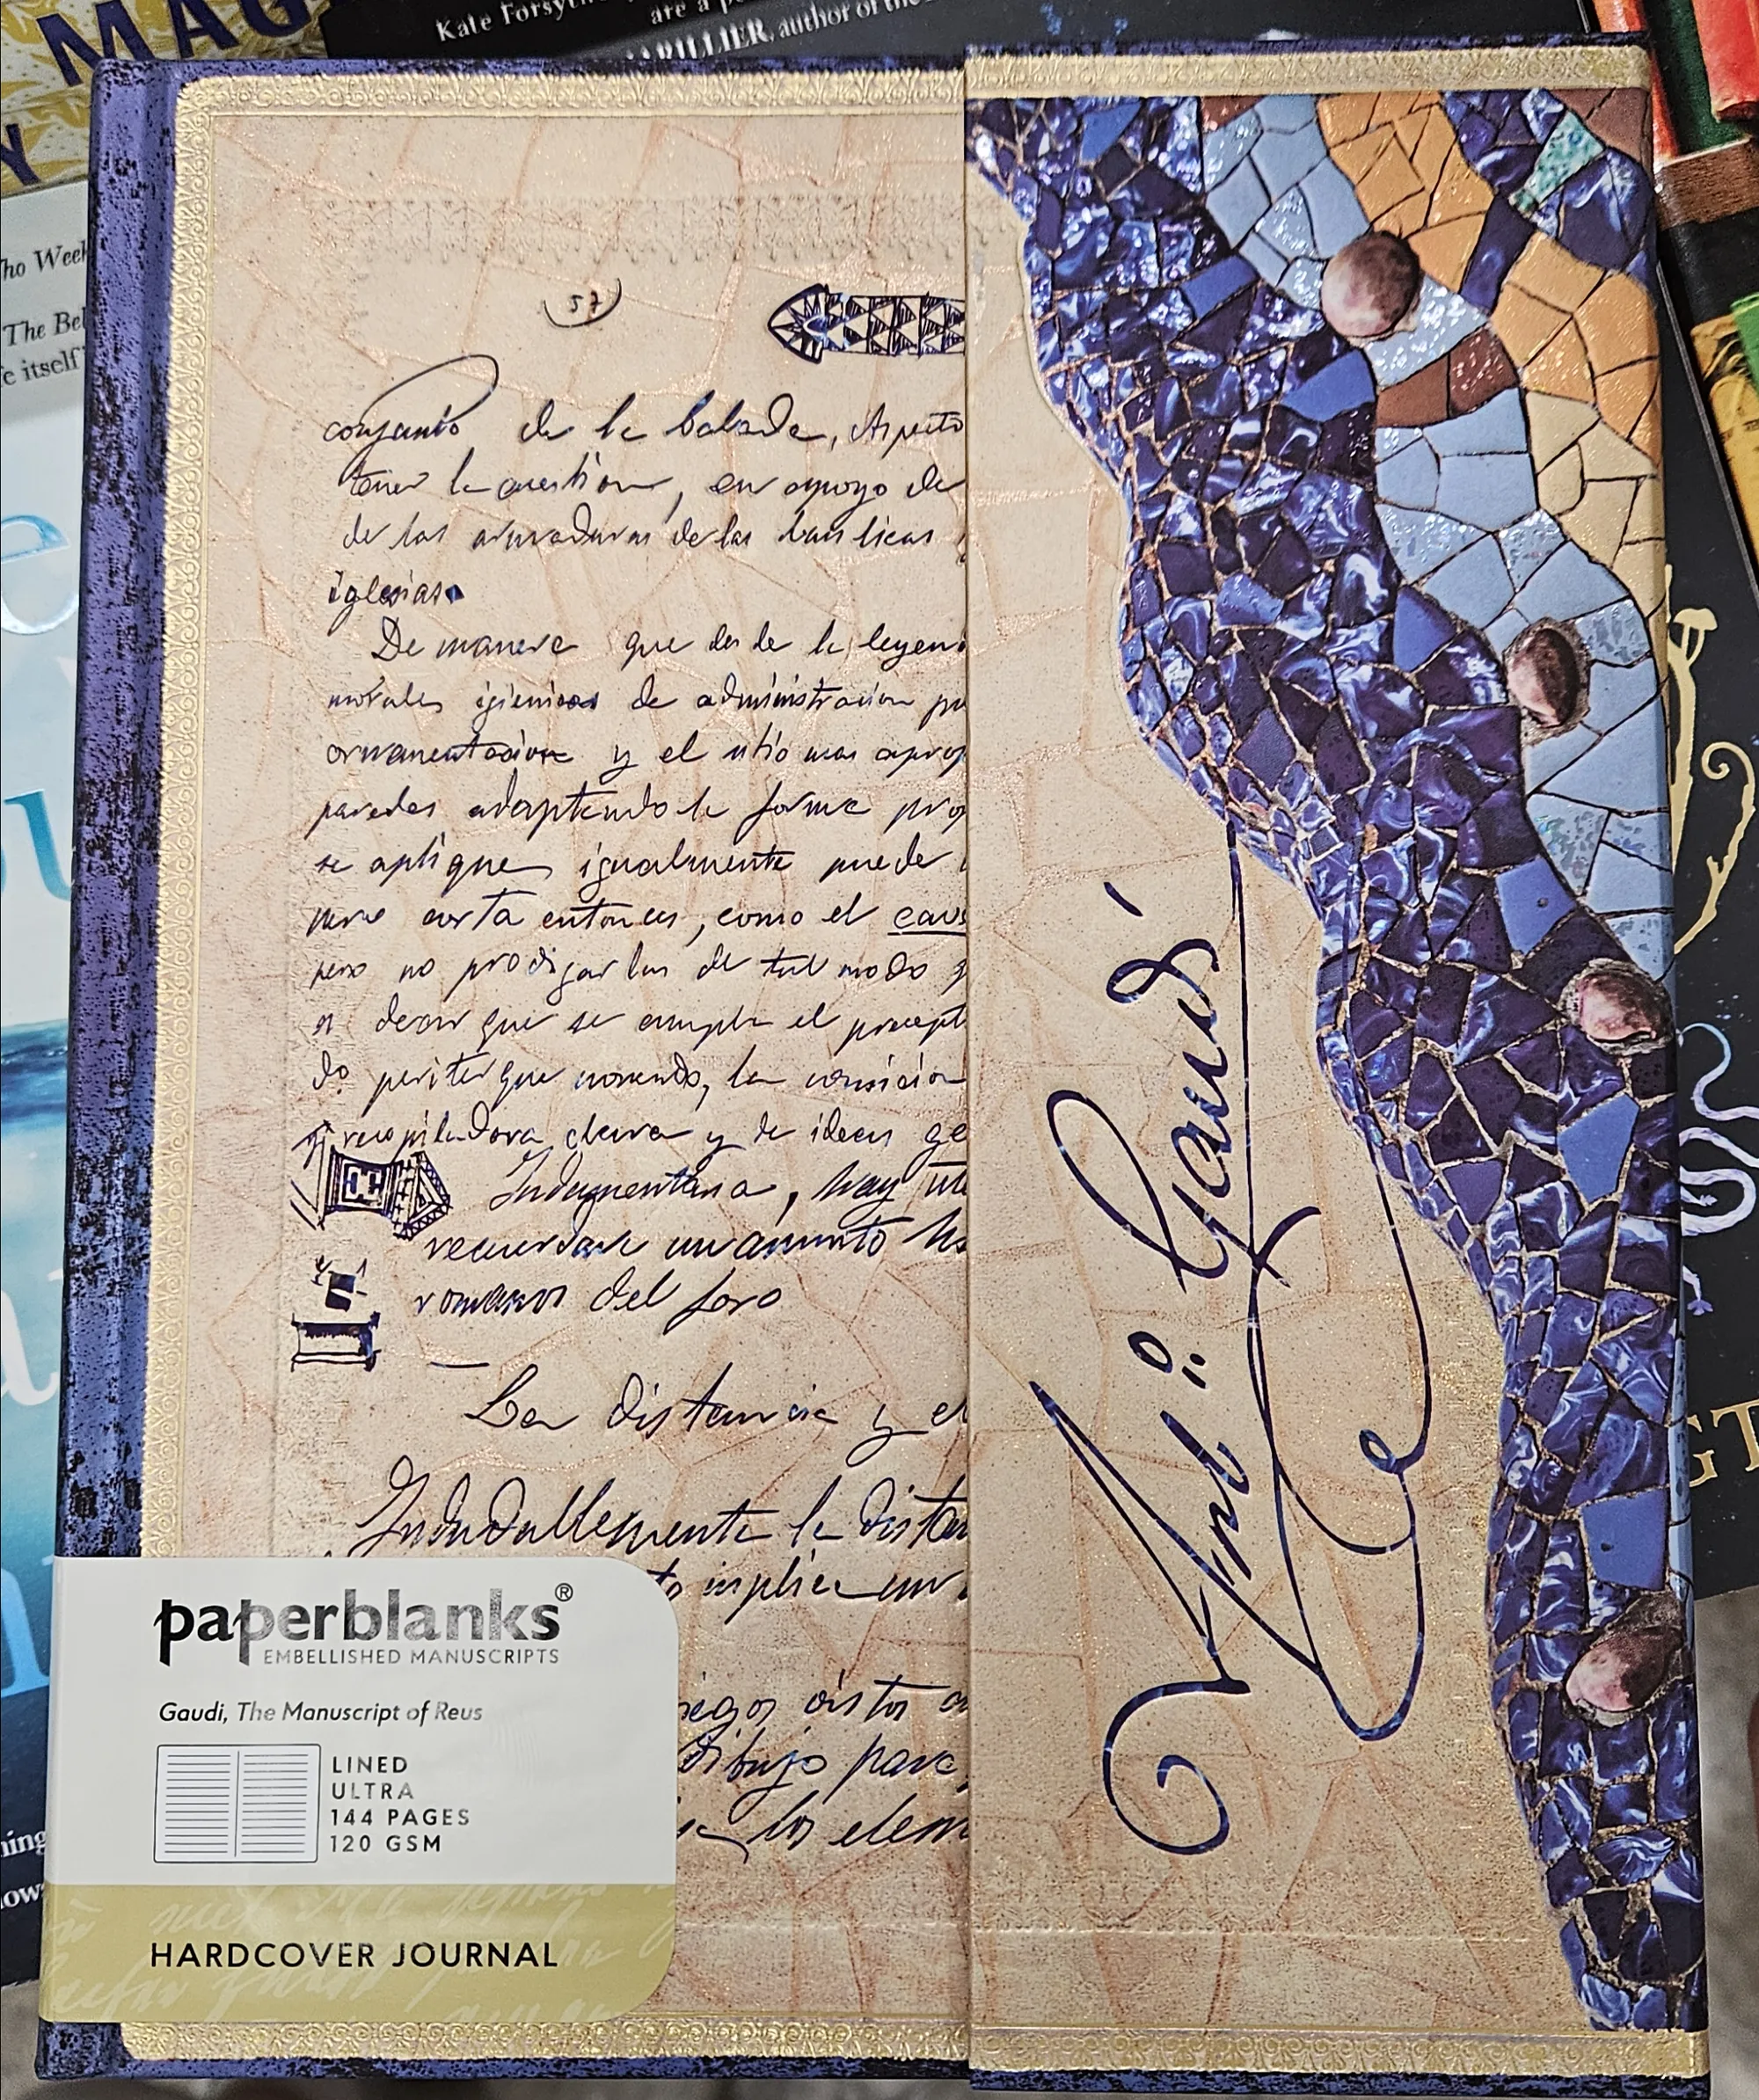 MAG
Y
Kate Forsyth
are a p
ARILLIER, author of the
ho Week
The Bel
e itself
57
conjunto de la balada, Aspecto
tener la cuestion, en apoyo de
de las armaduras de las basilicas
iglesias.
De manera que desde la leyen
morales igienicos de administracion pu
ornamentacion y el sitio mas aprop
paredes adaptando la forma prop
se aplique igualmente puede
corta entonces, como el caus
pero no prodigarlas de tal modo q
es decir que se cumpla el precept
do que la concicion
recopiladora clara y de ideas ge
Indumentaria, hay
recuerdase un asunto
romanos del foro
La distancia y el
Indudablemente la distan
implica un
visto
dibujo para
los elem
Antº Gaudí
paperblanks®
EMBELLISHED MANUSCRIPTS
Gaudí, The Manuscript of Reus
LINED
ULTRA
144 PAGES
120 GSM
HARDCOVER JOURNAL
GT
ning